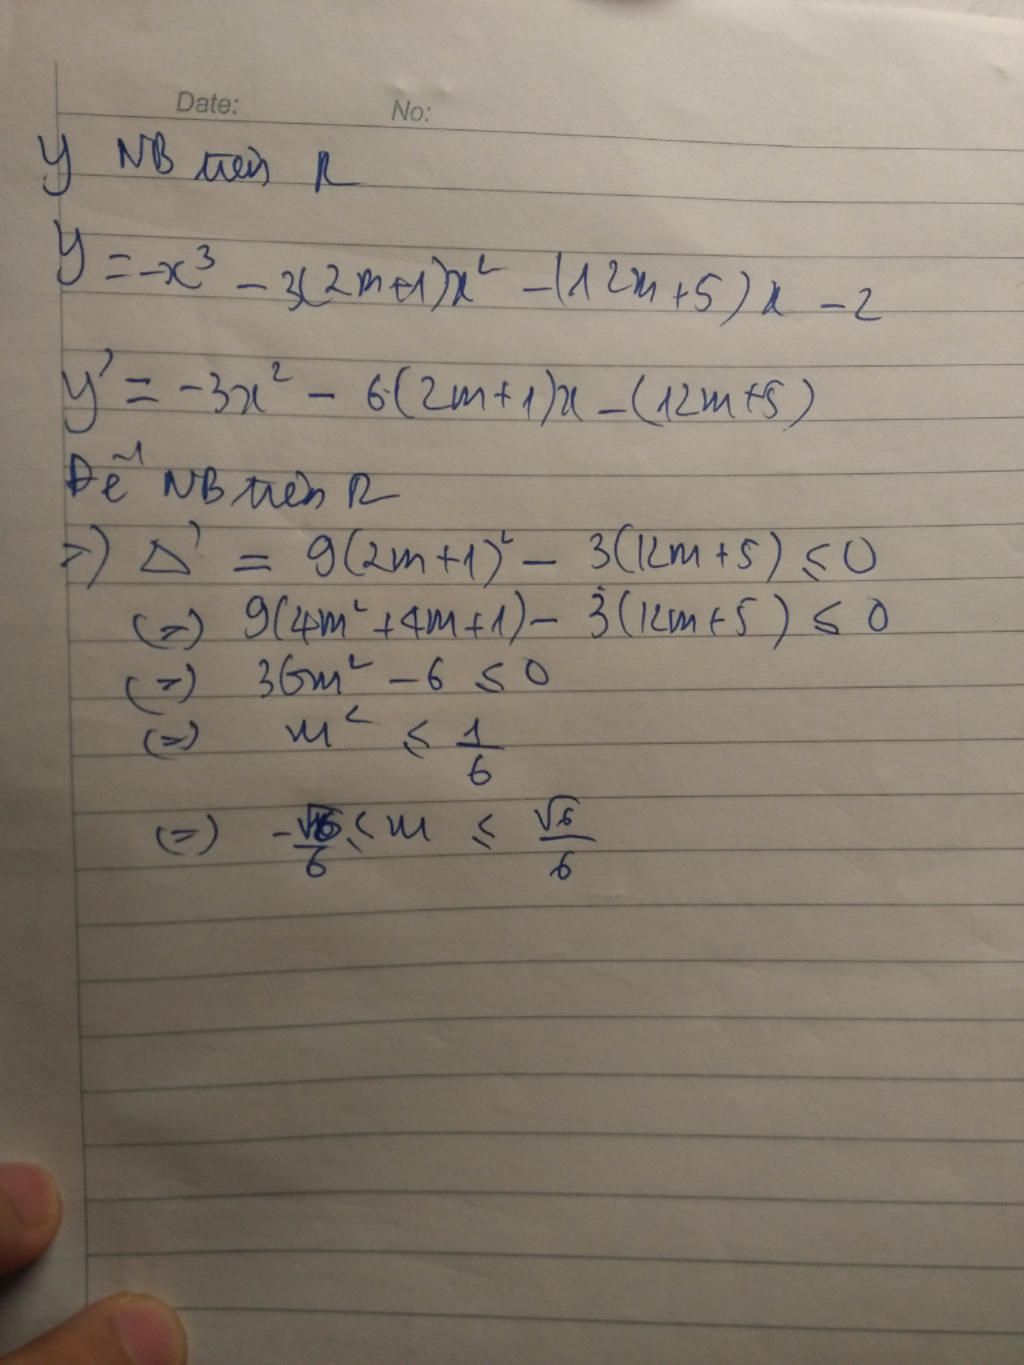 Date: No:
y NB trên R
y = -x³ - 3(2m+1)x² - (12m+5)x - 2
y' = -3x² - 6(2m+1)x - (12m+5)
Để NB trên R
=) Δ' = 9(2m+1)² - 3(12m+5) ≤ 0
(=) 9(4m²+4m+1) - 3(12m+5) ≤ 0
(=) 36m² - 6 ≤ 0
(=) m² ≤ 1/6
(=) -√6/6 ≤ m ≤ √6/6